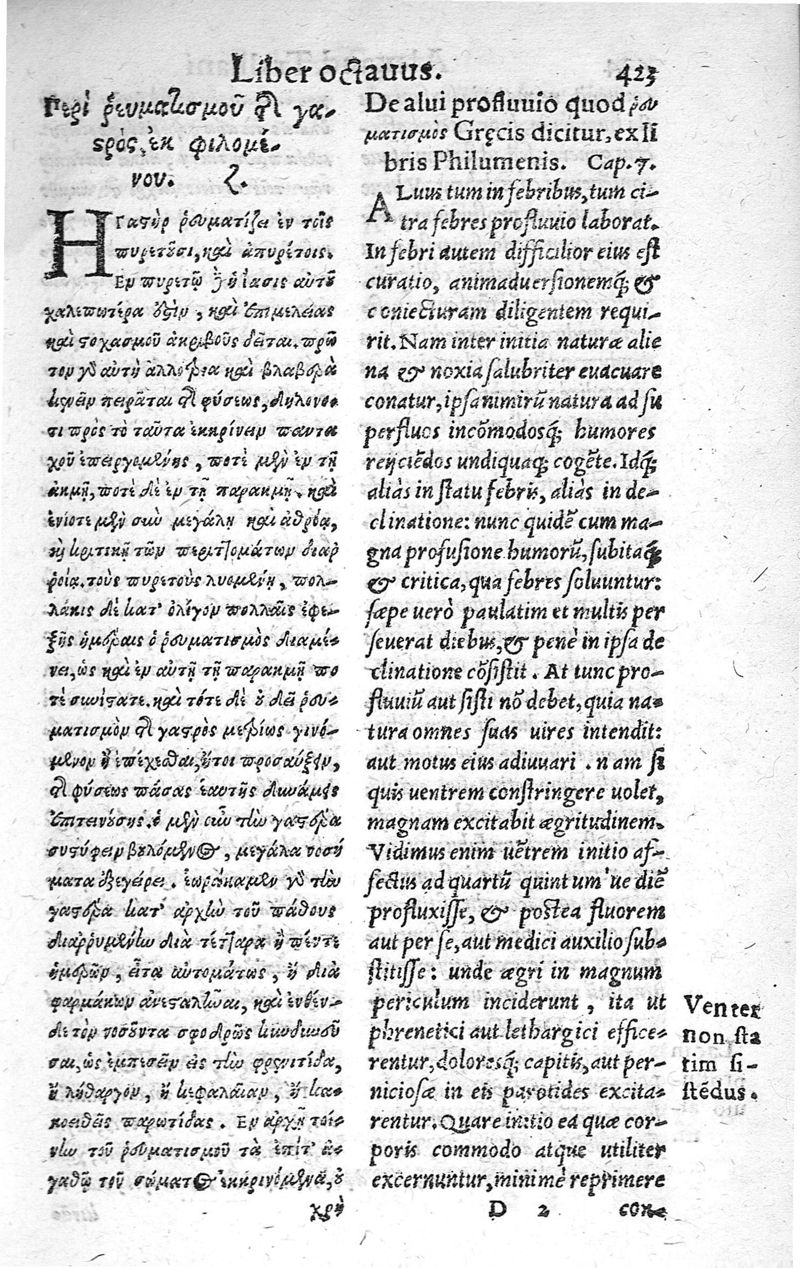 Liber octauus. 423
Περὶ ῥευματισμοῦ τῆς γα-
στρὸς, ἐκ φιλομέ-
νου. ζ.
ΗΓαστὴρ ῥευματίζει ἐν τοῖς
πυρετοῖσι, καὶ ἀπυρέτοις.
Εν πυρετῷ ἡ ἴασις αὐτοῦ
χαλεπωτέρα ὀξὶν, καὶ ἐπιμελείας
καὶ στοχασμοῦ ἀκριβοῦς δεῖται. πρῶ
τον γὸ αὐτὴ ἀλλότρια καὶ βλαβερὰ
κενοῦν πειρᾶται τῆς φύσεως, δηλονό-
τι πρὸς τὸ ταῦτα ἐκκρίνειν παντα
χοῦ ἐπειργομένης, ποτὲ μὲν ἐν τῇ
ἀκμῇ, ποτὲ δὲ ἐν τῇ παρακμῇ. καὶ
ἐνίοτε μὲν σὺν μεγάλῃ καὶ ἀθρόᾳ,
κριτικῇ τῶν περιττωμάτων διαρ
ροίᾳ. τοὺς πυρετοὺς λυομένη, πολ-
λάκις δὲ κατ' ὀλίγον πολλαῖς ἐφε-
ξῆς ἡμέραις ὁ ῥευματισμὸς διαμέ-
νει, ὡς καὶ ἐν αὐτῇ τῇ παρακμῇ πο
τὲ συνίστατε. καὶ τότε δὲ οὐ δεῖ ῥευ-
ματισμὸν τῆς γαστρὸς μετρίως γινό-
μενον ἢ ἐπέχεσθαι, ἤτοι προσαύξειν,
τῆς φύσεως πάσας ἑαυτῆς δυνάμεις
ἐπιτεινούσης. ὁ μὲν οὖν τὴν γαστέρα
συστύφειν βουλόμενος, μεγάλα νοσή
ματα ἐξεγείρει. ἑωράκαμεν γὸ τὴν
γαστέρα κατ' ἀρχὴν τοῦ πάθους
διαῤῥυμένην διὰ τέτταρα ἢ πέντε
ἡμερῶν, εἶτα αὐτομάτως, ἢ διὰ
φαρμάκων ἀνεσταλκῶαι, καὶ ἐνθέν-
δε τὸν νοσοῦντα σφοδρῶς κινδυνοῦ
σαι, ὡς ἐμπεσεῖν εἰς τὴν φρενιτίδα,
ἢ λήθαργον, ἢ κεφαλαίαν, ἢ κα-
κοειθεῖς παρωτίδας. Εν ἀρχῇ τοί-
νυν τοῦ ῥευματισμοῦ τὰ ἐπ' ἀ-
γαθῷ τοῦ σώματος ἐκκρινόμενα, οὐ
χρὴ
De alui profluuio quod ῥευ
ματισμὸς Gręcis dicitur, ex li
bris Philumenis. Cap. 7.
ALuus tum in febribus, tum ci-
tra febres profluuio laborat.
In febri autem difficilior eius est
curatio, animaduersionemq́; &
coniecturam diligentem requi-
rit. Nam inter initia naturæ alie
na & noxia salubriter euacuare
conatur, ipsa nimirū natura ad su
perfluos incōmodosq́; humores
reijciēdos undiquaq; cogēte. Idq́;
aliàs in statu febris, aliàs in de-
clinatione: nunc quidē cum ma-
gna profusione humorū, subitaq́;
& critica, qua febres soluuntur:
sæpe uerò paulatim et multis per
seuerat diebus, & penè in ipsa de
clinatione cōsistit. At tunc pro-
fluuiū aut sisti nō debet, quia na-
tura omnes suas uires intendit:
aut motus eius adiuuari. nam si
quis uentrem constringere uolet,
magnam excitabit ægritudinem.
Vidimus enim uētrem initio af-
fectus ad quartū quintum'ue diē
profluxisse, & postea fluorem
aut per se, aut medici auxilio sub-
stitisse: unde ægri in magnum
periculum inciderunt, ita ut
phrenetici aut lethargici effice-
rentur, doloresq́; capitis, aut per-
niciosæ in eis parotides excita-
rentur. Quare initio ea quæ cor-
poris commodo atque utiliter
excernuntur, minimè reprimere
D 2 con-
Venter
non sta
tim si-
stēdus.